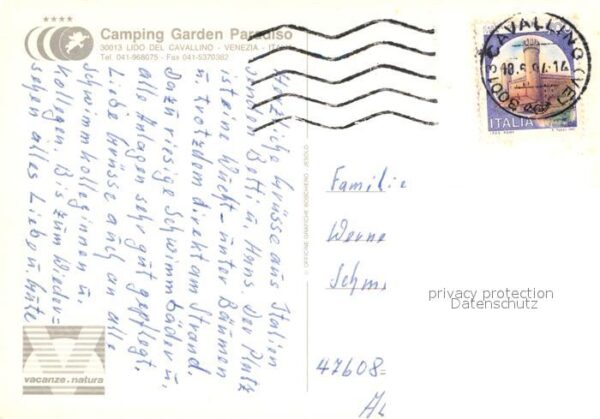 ★★★★
Camping Garden Paradiso
30013 LIDO DEL CAVALLINO - VENEZIA - ITALIA
Tel. 041-968075 - Fax 041-5370382
30013 CAVALLINO (VE)
10.5.94-14
ITALIA
Herzliche Grüsse aus Italien
senden Betti u. Hans. Der Platz
ist eine Wucht - unter Bäumen
u. trotzdem direkt am Strand.
Dazu riesige Schwimmbäder u.
alle Anlagen sehr gut gepflegt.
Liebe Grüsse auch an alle
Schwimmkolleginnen u.
Kollegen. Bis zum Wieder-
sehen alles Liebe u. Gute
© OFFICINE GRAFICHE BOSCHIERO - JESOLO
Familie
Werne
Schm
47608
privacy protection
Datenschutz
vacanze natura